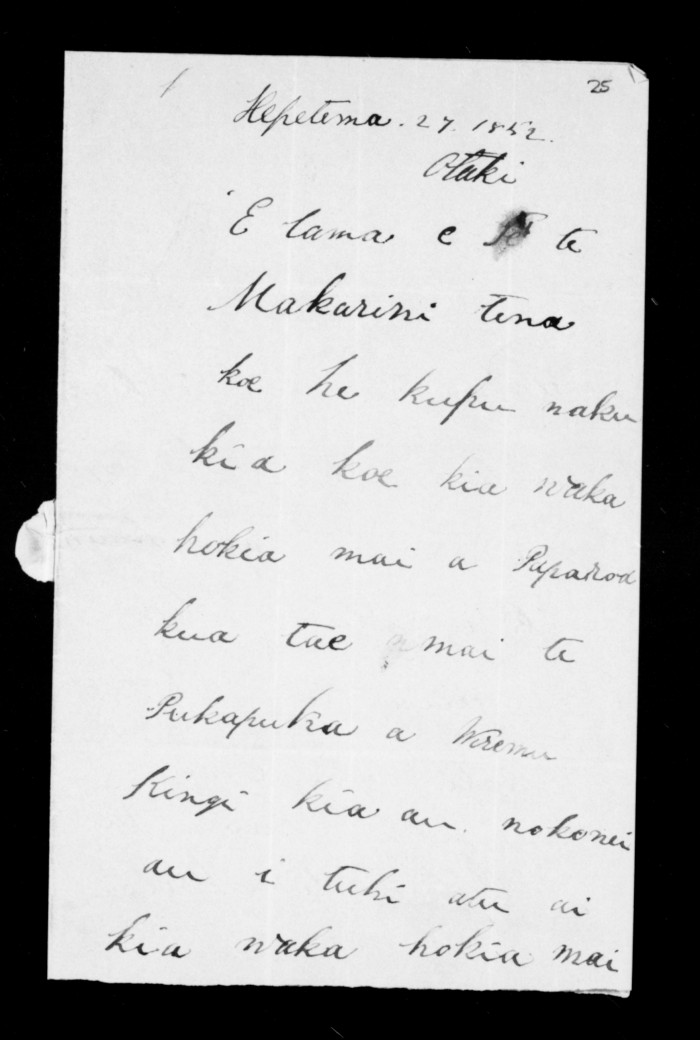 25
Hepetema. 27. 1852.
Otaki
E tama e te
Makarini tena
koe he kupu naku
kia koe kia waka
hokia mai a Paparoa
kua tae mai te
Pukapuka a Wiremu
Kingi kia au. nokonei
au i tuhi atu ai
kia waka hokia mai